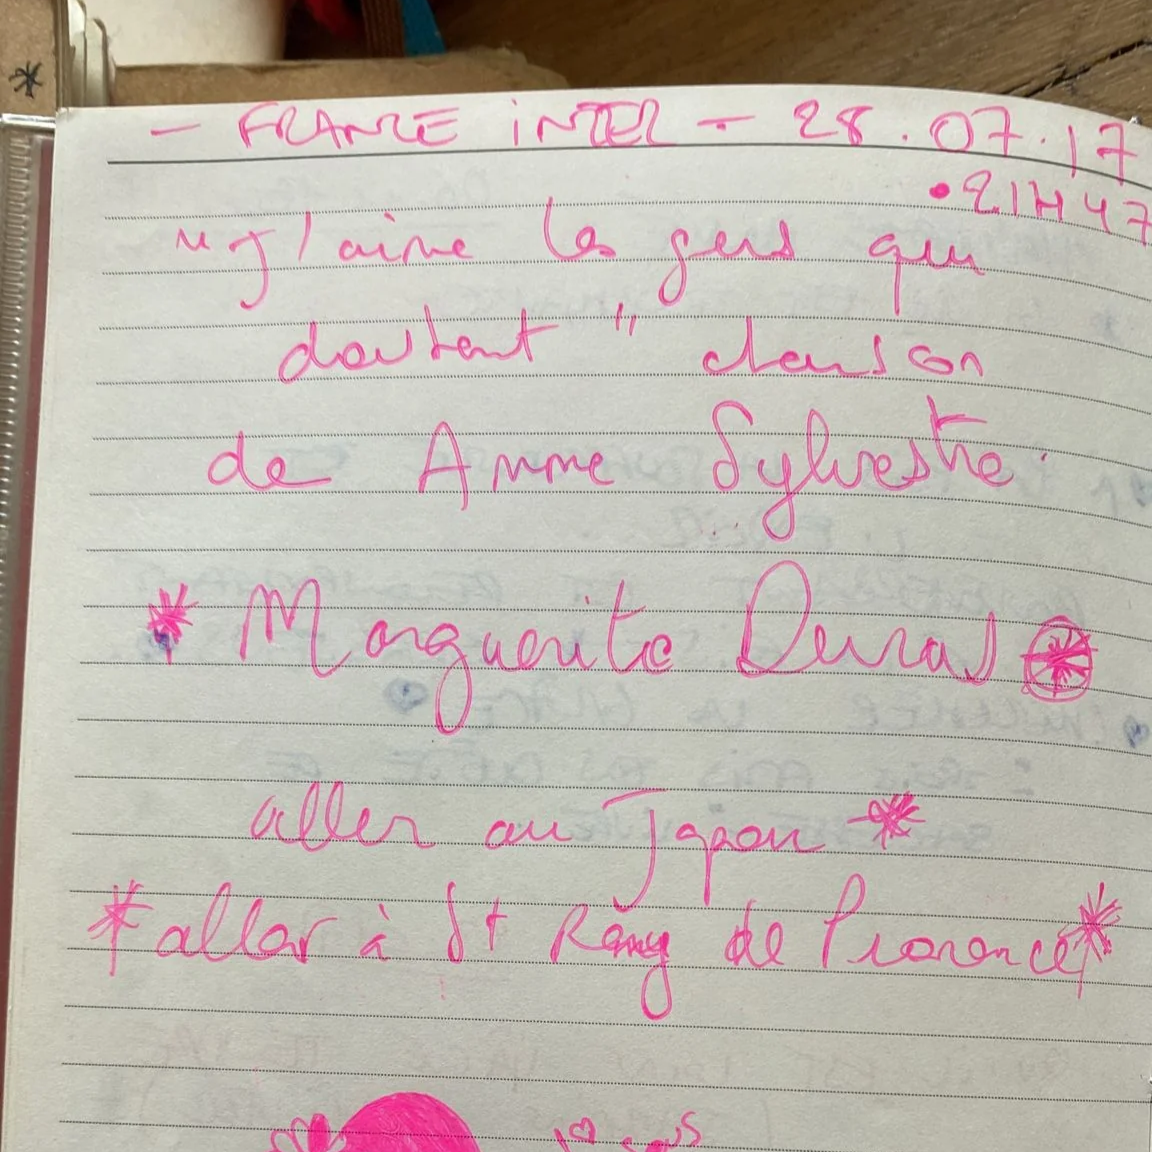 - FRANCE iNTER - 28.07.17
• 21H47
"J'aime les gens qui
doutent" chanson
de Anne Sylvestre.
Marguerite Duras
aller au Japon
aller à St Rémy de Provence